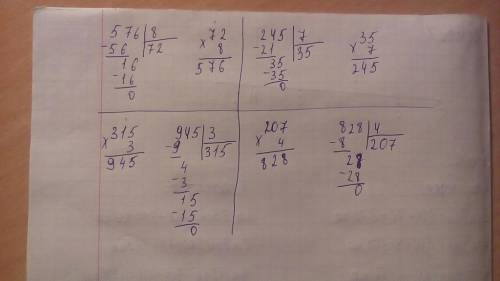 576 | 8
-56 | 72
16
-16
0
72
x 8
576
245 | 7
-21 | 35
35
-35
0
35
x 7
245
x 315
3
945
945 | 3
-9 | 315
4
-3
15
-15
0
x 207
4
828
828 | 4
-8 | 207
28
-28
0